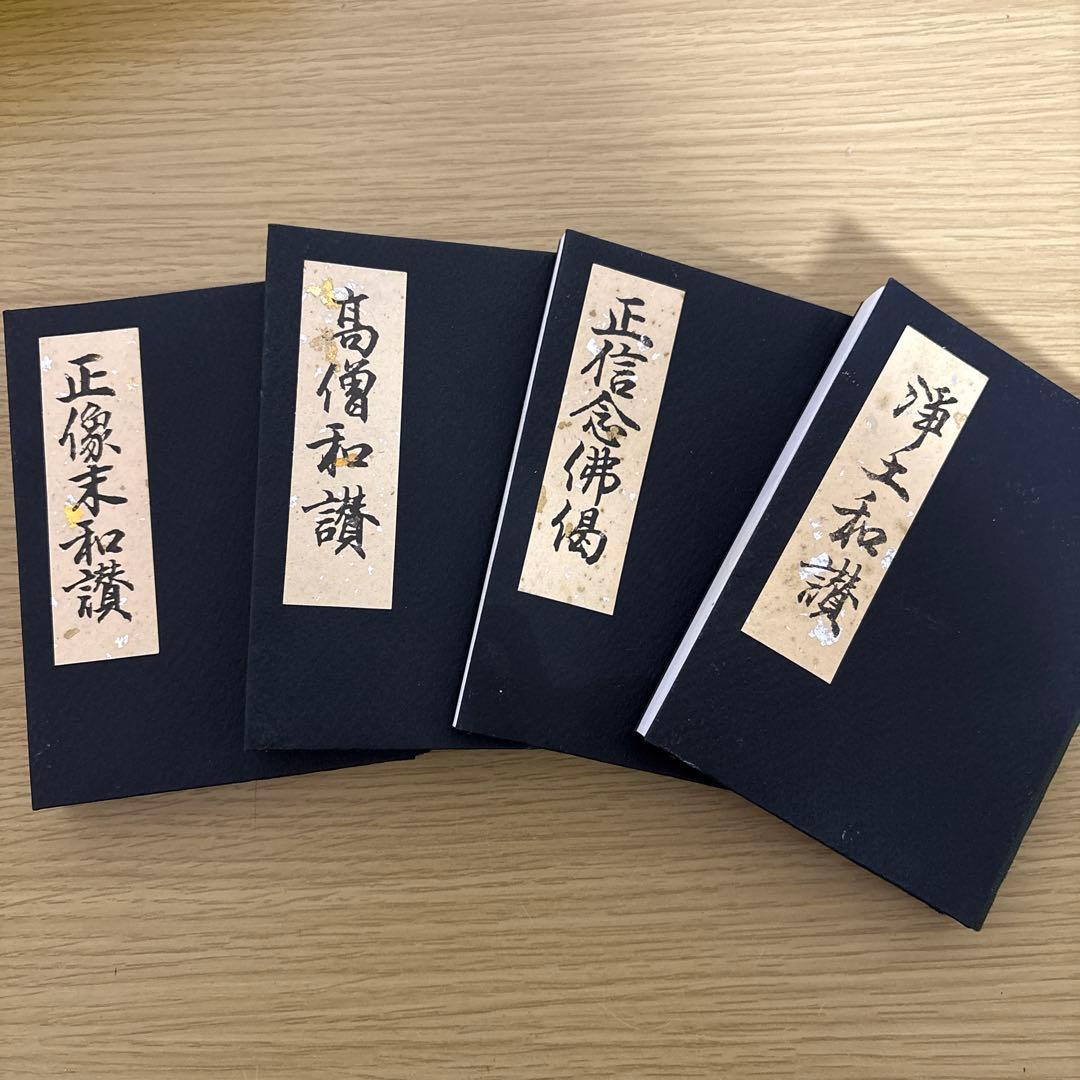 正像末和讃
高僧和讃
正信念佛偈
淨土和讃